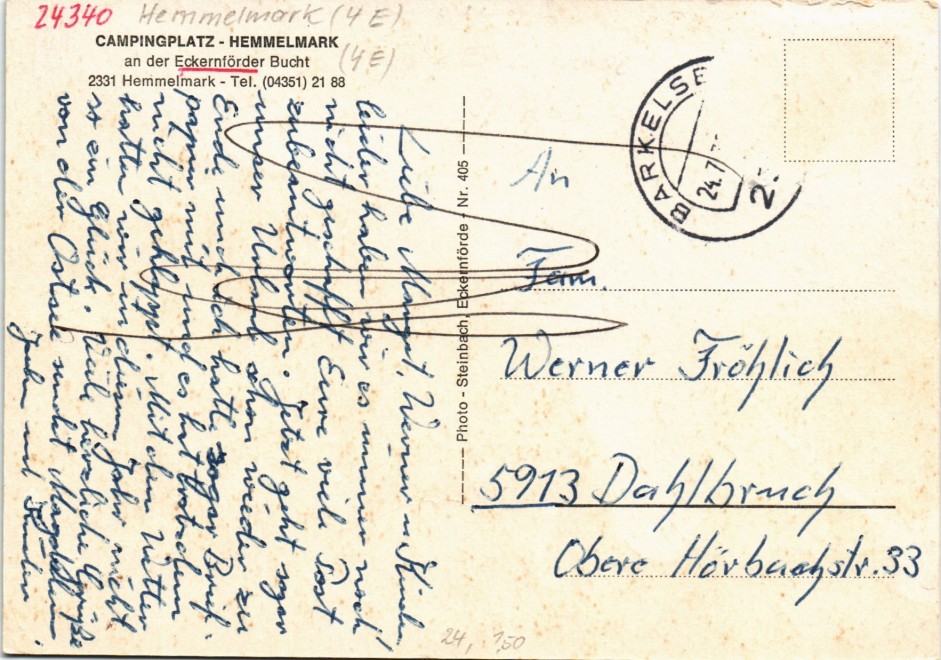 24340 Hemmelmark (4 E)
CAMPINGPLATZ - HEMMELMARK
(4 E)
an der Eckernförder Bucht
2331 Hemmelmark - Tel. (04351) 21 88
Liebe Margot, Werner u. Kinder!
leider haben wir es immer noch
nicht geschafft Eure viele Post
zu beantworten. Jetzt geht sogar
unser Urlaub schon wieder zu
Ende und ich hatte sogar Brief-
papier mit und es hat trotzdem
nicht geklappt. Mit dem Wetter
hatten wir in diesem Jahr nicht
so ein Glück. Viele herzliche Grüße
von der Ostsee sendet
und Kinder
Photo - Steinbach, Eckernförde - Nr. 405
BARKELS
24.7
2
An
Fam.
Werner Fröhlich
5913 Dahlbruch
Obere Hörbachstr. 33
24, 1,50